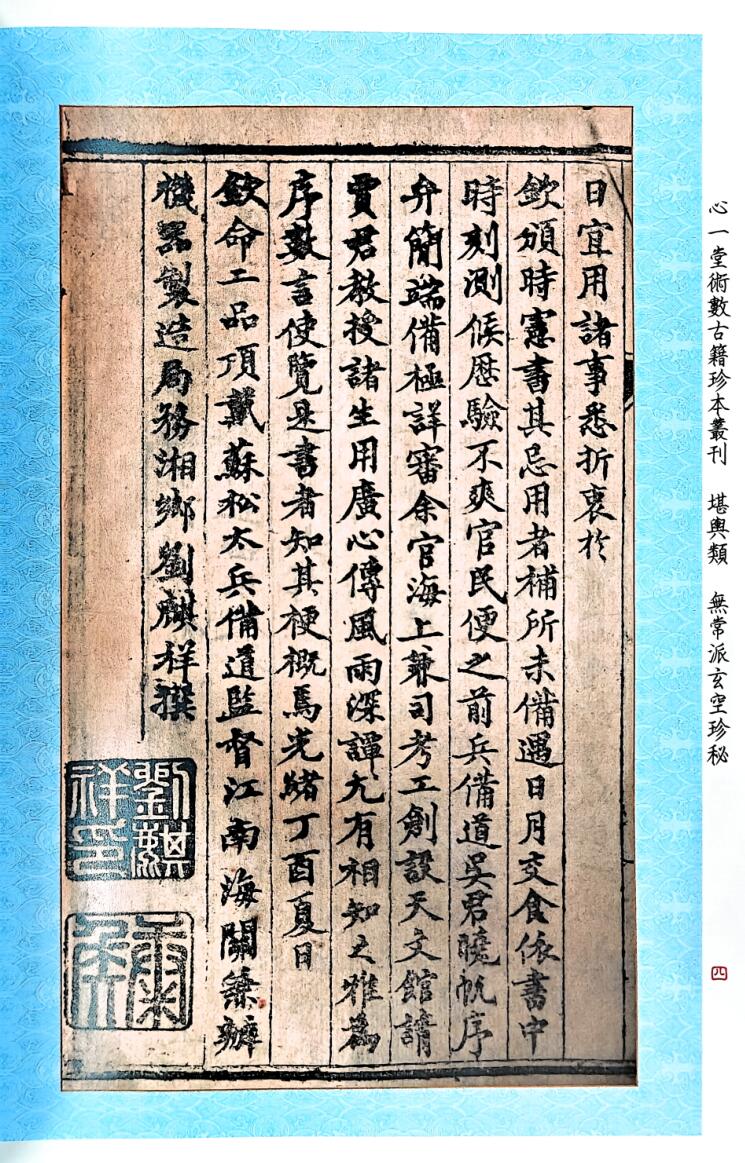 心一堂術數古籍珍本叢刊 堪輿類 無常派玄空珍秘
四
日宜用諸事悉折衷於
欽頒時憲書其忌用者補所未備遇日月交食依書中
時刻測候歷驗不爽官民便之前兵備道吳君曉帆序
弁簡端備極詳審余官海上兼司考工創設天文館請
賈君教授諸生用廣心傳風雨深譚尤有相知之雅為
序數言使覽是書者知其梗概焉光緒丁酉夏日
欽命二品頂戴蘇松太兵備道監督江南海關兼辦
機器製造局務湘鄉劉麒祥撰
劉麒祥印